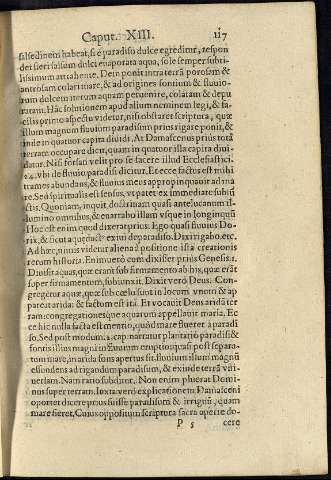 Caput. XIII. 117
salsedinem habeat, si è paradiso dulce egreditur, respon
det fieri salsum dulci euaporata aqua, sole semper subti-
lissimum attrahente. Dein ponit intra terrã porosam &
antrosam colari mare, & ad origines fontium & fluuio-
rum dulcem iterum aquam peruenire, colatam & depu
ratam. Hãc solutionem apud alium neminem legi, & fa-
cilis primo aspectu videtur, nisi obstaret scriptura, quæ
illum magnum fluuium paradisum prius rigare ponit, &
inde in quatuor capita diuidi. At Damascenus prius totã
terram occupare dicit, quam in quatuor illa capita diui-
datur. Nisi forsan velit pro se facere illud Ecclesiastici.
24. vbi de fluuio paradisi dicitur. Et ecce factus est mihi
trames abundans, & fluuius meus appropinquauit ad ma
re. Sed spiritualis est sensus, vt patet ex immediatè subiũ
ctis. Quoniam, inquit, doctrinam quasi antelucanum il-
lumino omnibus, & enarrabo illam vsque in longinquũ
Hoc est enim quod dixerat prius: Ego quasi fluuius Do-
rix, & sicut aquæductus exiui de paradiso. Dixi rigabo. etc.
Ad hæc, nimis videtur aliena à positione ista creationis
rerum historia. Enimuerò cum dixisset prius Genesis. 1.
Diuisit aquas, quæ erant sub firmamento ab his, quæ erãt
super firmamentum, subiunxit. Dixit verò Deus. Con-
gregentur aquæ, quæ sub cœlo sunt in locum vnum & ap
pareat arida: & factum est ita. Et vocauit Deus aridã ter
ram: congregationesque aquarum appellauit maria. Ec
ce hic nulla facta est mentio, quòd mare flueret à paradi
so. Sed post modum. 2. cap. narratur plantatio paradisi &
fontis illius magni no Fluuium eruptio: quasi post separa-
tum mare, in arida sons apertus sit, fluuium illum magnũ
effundens ad rigandum paradisum, & exinde terrã vni-
uersam. Nam ratio subditur. Non enim pluerat Domi-
nus super terram. Iuxta verò explicationem Damasceni
oportet dicere prius fuisse paradisum & irriguũ, quam
mare fieret, Cuius oppositum scriptura sacra aperte do-
P 5 cere